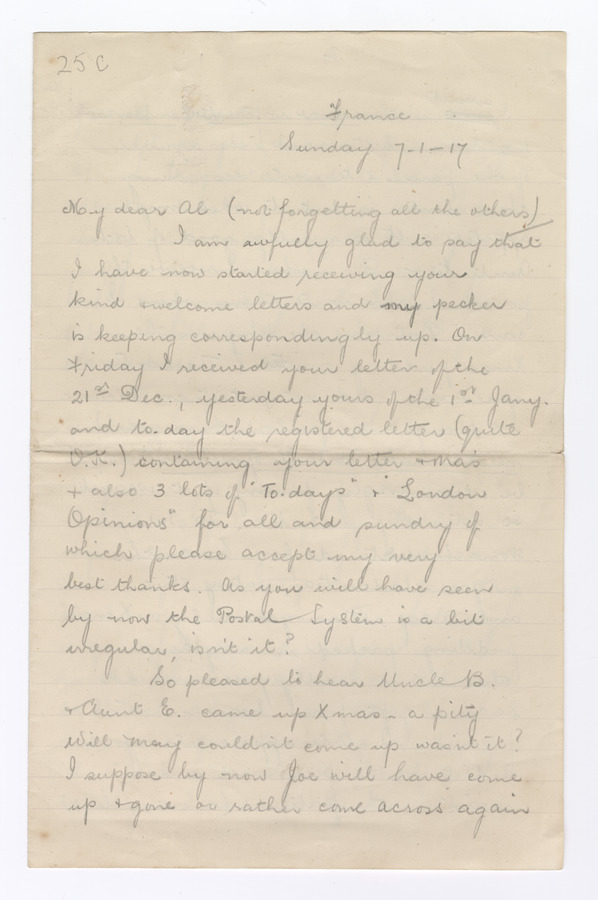 25C
France
Sunday 7-1-17
My dear Al (not forgetting all the others)
I am awfully glad to say that
I have now started receiving your
kind & welcome letters and my pecker
is keeping correspondingly up. On
Friday I received your letter of the
21st Dec., yesterday yours of the 1st Jany.
and to-day the registered letter (quite
O.K.) containing your letter & Ma's
& also 3 lots of "To-days" & "London
Opinions" for all and sundry of
which please accept my very
best thanks. As you will have seen
by now the Postal System is a bit
irregular, isn't it?
So pleased to hear Uncle B.
& Aunt E. came up Xmas - a pity
Will May couldn't come up wasn't it?
I suppose by now Joe will have come
up & gone or rather come across again